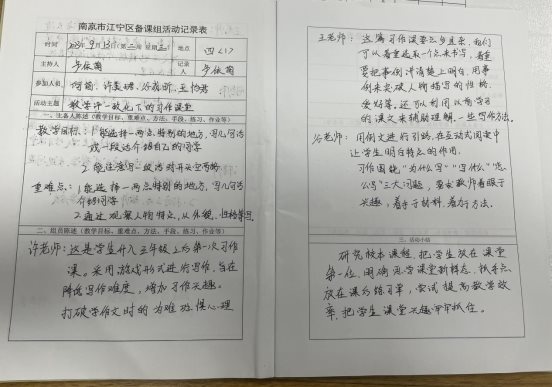 南京市江宁区备课组活动记录表
时间 2023年9月13日(第二周星期三) 地点 四(1)
主持人 卞依萌 记录人 卞依萌
参加人员 何前、许美娟、谷 王怡君
活动主题 教学评一致化下的习作课堂
一、主备人陈述(教学目标、重难点、方法、手段、练习、作业等)
教学目标: 1.能选择一两点特别的地方,写几句话
或一段话介绍自己的同学
2.能注意写一段话时开头空两格
重难点: 1.能选择一两点特别的地方,写几句话
介绍同学
2.通过观察人物特点,从外貌、性格等写
二、组员陈述(教学目标、重难点、方法、手段、练习、作业等)
许老师: 这是学生升入三年级上的第一次习作
课。采用游戏形式进行写作,旨在
降低写作难度,增加习作兴趣。
打破学作文时的为难 惧心理
王老师: 这篇习作课要怎么
可以着重选取一个点来书写,着重
要把事例讲清楚上明白,用事
例来突破人物描写的性格、
爱好等,还可以利用以前学习
的课文来辅助理解一些写作方法。
谷老师: 用例文进行引路,在互动式阅读中
让学生明白特点的作用。
习作围绕“为什么写”“写什么”“怎
么写”三大问题,要求教师着眼于
兴趣,着手于材料,着力于方法。
三、活动小结
研究校本课程,把学生放在课堂
第一位,明确 学课堂新样态,抓手点
放在课后练习单,尝试提高教学效
率,把学生课堂兴趣牢牢抓住。